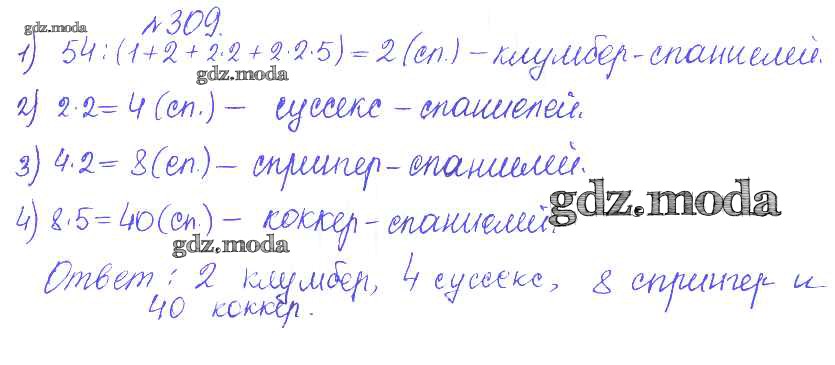 №309.
gdz.moda
1) 54:(1+2+2·2+2·2·5)=2(сп.) – клумбер-спаниелей.
gdz.moda
2) 2·2=4(сп.) – суссекс-спаниелей.
3) 4·2=8(сп.) – спрингер-спаниелей.
gdz.moda
4) 8·5=40(сп.) – коккер-спаниелей.
gdz.moda
Ответ: 2 клумбер, 4 суссекс, 8 спрингер и
40 коккер.